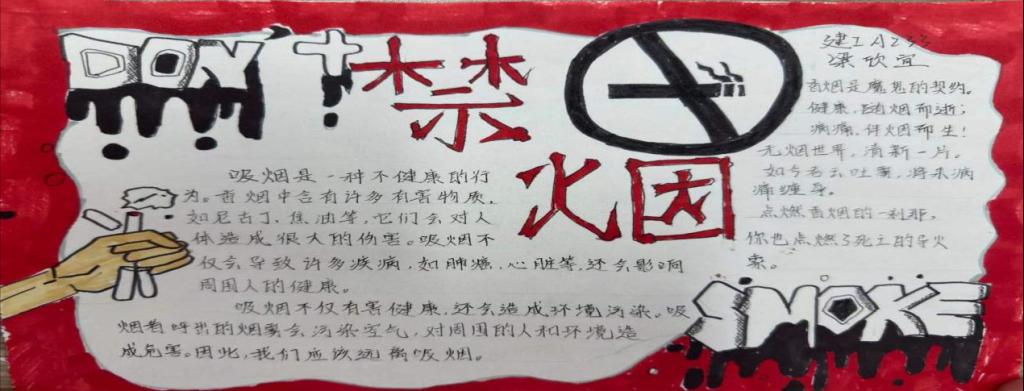 DON'T
禁烟
建工A233
梁欣宜
香烟是魔鬼的契约。
健康，随烟而逝；
病痛，伴烟而生！
无烟世界，清新一片。
如今吞云吐雾，将来病
痛缠身。
点燃香烟的一刹那，
你也点燃了死亡的导火
索。
吸烟是一种不健康的行
为。香烟中含有许多有害物质，
如尼古丁、焦油等，它们会对人
体造成很大的伤害。吸烟不
仅会导致许多疾病，如肺癌、心脏等，还会影响
周围人的健康。
吸烟不仅有害健康，还会造成环境污染。吸
烟者呼出的烟雾会污染空气，对周围的人和环境造
成危害。因此，我们应该远离吸烟。
SMOKE